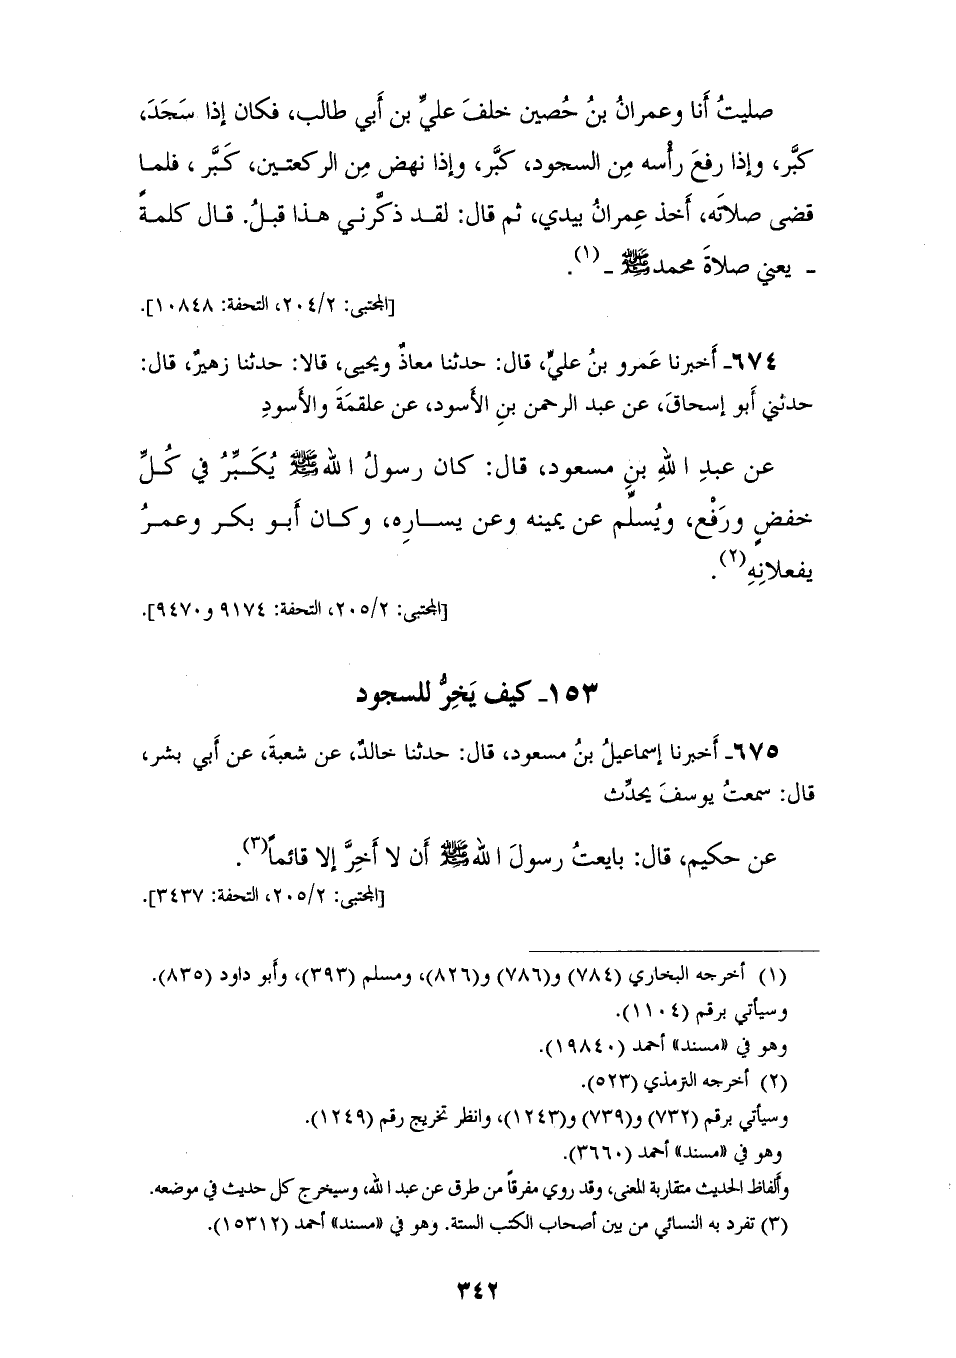 صليتُ أَنا وعمرانُ بنُ حُصين خلفَ عليِّ بن أَبي طالب، فكان إذا سَجَدَ،
كبَّر، وإذا رفعَ رأْسه مِن السجود، كبَّر، وإذا نهض مِن الركعتين، كَبَّر، فلما
قضى صلاتَه، أَخذ عِمرانُ بيدي، ثم قال: لقد ذكَّرني هذا قبلُ. قال كلمةً
- يعني صلاةَ محمد ﷺ -(١).
[المجتبى: ٢٠٤/٢، التحفة: ١٠٨٤٨].
٦٧٤- أَخبرنا عَمرو بنُ عليٍّ، قال: حدثنا معاذٌ ويحيى، قالا: حدثنا زهيرٌ، قال:
حدثني أَبو إسحاقَ، عن عبد الرحمن بنِ الأَسود، عن علقمَةَ والأَسودِ
عن عبدِ اللهِ بنِ مسعود، قال: كان رسولُ اللهِ ﷺ يُكَبِّرُ في كُلِّ
خفضٍ ورَفْع، ويُسلِّم عن يمينه وعن يسارِه، وكان أَبو بكر وعمرُ
يفعلانِهِ(٢).
[المجتبى: ٢٠٥/٢، التحفة: ٩١٧٤ و٩٤٧٠].
١٥٣- كيف يَخِرُّ للسجود
٦٧٥- أَخبرنا إسماعيلُ بنُ مسعود، قال: حدثنا خالدٌ، عن شعبةَ، عن أَبي بشر،
قال: سمعتُ يوسفَ يحدِّث
عن حكيم، قال: بايعتُ رسولَ اللهِ ﷺ أَن لا أَخِرَّ إلا قائماً(٣).
[المجتبى: ٢٠٥/٢، التحفة: ٣٤٣٧].
(١) أخرجه البخاري (٧٨٤) و(٧٨٦) و(٨٢٦)، ومسلم (٣٩٣)، وأَبو داود (٨٣٥).
وسيأتي برقم (١١٠٤).
وهو في «مسند» أحمد (١٩٨٤٠).
(٢) أخرجه الترمذي (٥٢٣).
وسيأتي برقم (٧٣٢) و(٧٣٩) و(١٢٤٣)، وانظر تخريج رقم (١٢٤٩).
وهو في «مسند» أحمد (٣٦٦٠).
وألفاظ الحديث متقاربة المعنى، وقد روي مفرقاً من طرق عن عبد الله، وسيخرج كل حديث في موضعه.
(٣) تفرد به النسائي من بين أصحاب الكتب الستة. وهو في «مسند» أحمد (١٥٣١٢).
٣٤٢